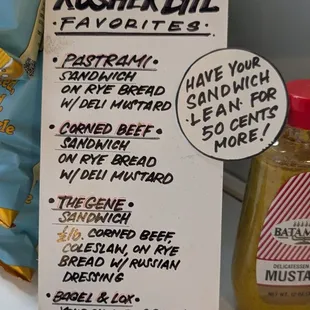 KOSHER DILL
FAVORITES
• PASTRAMI •
SANDWICH
ON RYE BREAD
W/ DELI MUSTARD
• CORNED BEEF •
SANDWICH
ON RYE BREAD
W/ DELI MUSTARD
• THE GENE •
SANDWICH
CORNED BEEF
COLESLAW, ON RYE
BREAD W/ RUSSIAN
DRESSING
• BAGEL & LOX •
HAVE YOUR
SANDWICH
LEAN FOR
50 CENTS
MORE!
BATAM
DELICATESSEN
MUSTA